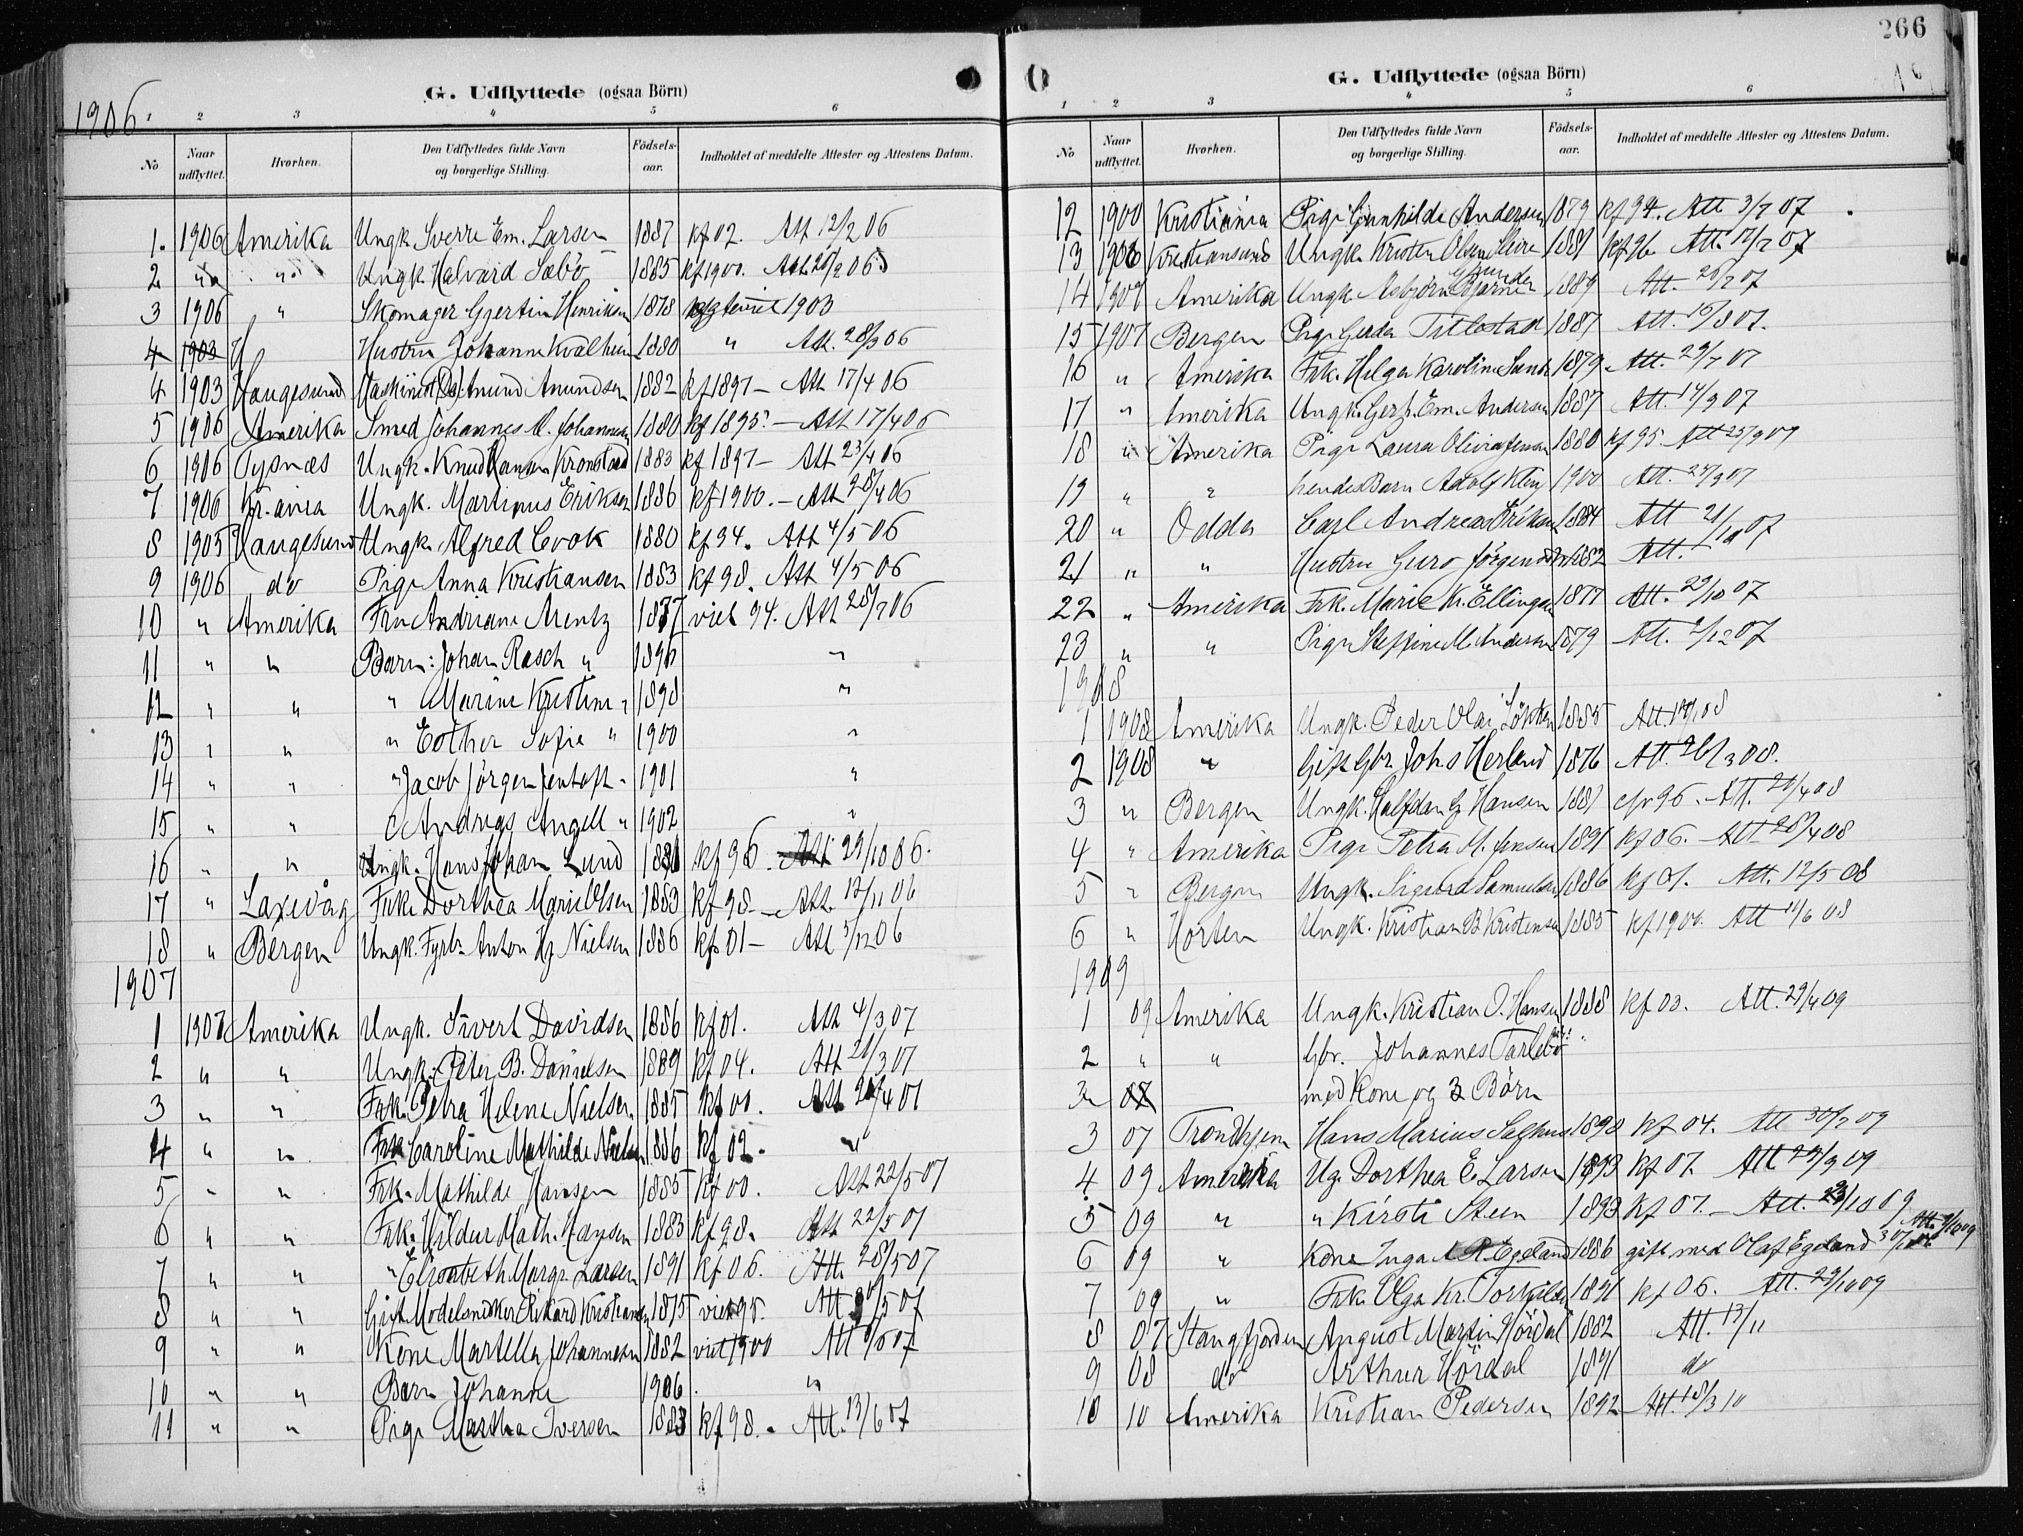 266
1906
G. Udflyttede (ogsaa Börn)
1 2 3 4 5 6
No Naar udflyttet. Hvorhen. Den Udflyttedes fulde Navn og borgerlige Stilling. Födsels-aar. Indholdet af meddelte Attester og Attestens Datum.
1. 1906 Amerika Ungk. Sverre Em. Larsen 1887 kf 02. Att 12/2 06
2 " " Ungk. Halvard Sæbö 1885 kf 1900. Att. 06
3 1906 " Skomager Henriksen 1878 1903
4 1903 Hustru Johanne Kvalheim 1880 " Att. 28/3 06
4 1903 Haugesund Amund Amundsen 1882 kf 1897 - Att 17/4 06
5 1906 Amerika Smed Johannes Johannesen 1880 kf 1895. - Att 17/4 06
6 1906 Tysnæs Ungk. Knud Hansen Kronstad 1883 kf 1897 - Att 23/4 06
7 1906 Kr.ania Ungk. Martinus Eriksen 1886 kf 1900. - Att 28/4 06
8 1905 Haugesund Ungk. Alfred Cook 1880 kf 94. Att 4/5 06
9 1906 do Pige Anna Kristiansen 1883 kf 98. Att 4/5 06
10 " Amerika Fru Andriane Arentz 1877 viet 94. Att 28/7 06
11 " " Barn: Johan Rasch " 1896 "
12 " " " Marine Kristine " 1898 "
13 " " " Esther Sofie " 1900 "
14 " " " Jacob Jörgen Jentoft " 1901 "
15 " " Andreas Angell " 1902 "
16 " " Ungk. Hans Johan Lund kf 96. Att 29/10 06.
17 " Laxevåg Frk. Dorthea Marie Olsen 1883 kf 98 - Att. 06
18 " Bergen Ungk. Fyrb. Anton Nielsen 1886 kf 01 - Att 5/12 06
1907
1 1907 Amerika Ungk. Sivert Davidsen 1886 kf 01. Att 4/3 07
2 " " Ungk. Peter B. Danielsen 1889 kf 04. Att 3 07
3 " " Frk. Petra Helene Nielsen 1885 kf 00. Att 4 07
4 " " Frk Caroline Mathilde Nielsen 1886 kf 02. "
5 " " Frk. Mathilde Hansen 1885 kf 00. Att 22/5 07
6 " " Frk. Hildur Math. Hansen 1883 kf 98. Att 22/5 07
7 " " " Elisabeth Margr. Larsen 1891 kf 06. Att. 28/5 07
8 " " Gift Modelsnedker Rikard Kristiansen 1875 viet 95. Att 5 07
9 " " Kone Martella Johannesen 1882 viet 1900 Att 07
10 " " Barn Johanne 1906 "
11 " " Pige Martha Iversen 1883 kf 98. Att. 13/6 07
G. Udflyttede (ogsaa Börn)
1 2 3 4 5 6
No Naar udflyttet. Hvorhen. Den Udflyttedes fulde Navn og borgerlige Stilling. Födsels-aar. Indholdet af meddelte Attester og Attestens Datum.
12 1900 Kristiania Pige Gunhilde Andersen 1879 kf 94. Att 3/7 07
13 1906 Kristiansund Ungk. Kristen Olsen 1881 kf 96 Att. 12/7 07
14 1907 Amerika Ungk. Asbjörn 1889 Att. 26/7 07
15 1907 Bergen Pige Gerda Titlestad 1887 Att. 8 07.
16 " Amerika Frk. Helga Karoline 1879 Att. 29/7 07
17 " Amerika Ungk. Gerh. Em. Andersen 1887 Att. 14/9 07
18 " Amerika Pige Laura Olivia Jensen 1880 kf 95. Att 25/9 07
19 " " hendes Barn Adolf 1900 Att. 9 07
20 " Odda Carl Andreas Eriksen 1884 Att 21/10 07
21 " " Hustru Guro 1882 Att.
22 " Amerika Frk. Marie Kr. Ellingsen 1877 Att. 29/10 07
23 " " Pige Steffine M. Andersen 1879 Att. 12 07
1908
1 1908 Amerika Ungk. Peder Olai 1885 Att 08
2 1908 " Gift Gbr. Johs Herland 1876 Att. 26/3 08.
3 " Bergen Ungk. Halfdan Hansen 1881 cfr 96. Att. 4 08
4 " Amerika Pige Petra M. Jensen 1891 kf 06. Att 28/4 08
5 " Bergen Ungk. Sigurd Samuelsen 1886 kf 01. Att. 12/5 08
6 " Horten Ungk. Kristian B. Kristensen 1885 kf 1900. Att 6 08
1909
1 09 Amerika Ungk. Kristian O. Hansen 1888 kf 03. Att. 29/4 09
2 " " Gbr. Johannes Tarlebö
3 med kone og 3 Börn
3 07 Trondhjem Hans Marius 1890 kf 04. Att 30/7 09
4 09 Amerika Ug. Dorthea E. Larsen 1893 kf 07. Att 9 09
5 09 " " Kirsti Steen 1893 kf 07. - Att. 10 09
6 09 " Kone Inga Egeland 1886 gift med Olaf Egeland
7 09 " Frk. Olga Kr. 1891 kf 06. Att. 29/10 09
8 07 Stangfjorden August Martin Hördal 1882 Att. 13/11
9 08 do Arthur Hördal 1891 do
10 10 Amerika Kristian Pedersen 1892 Att. 18/3 10